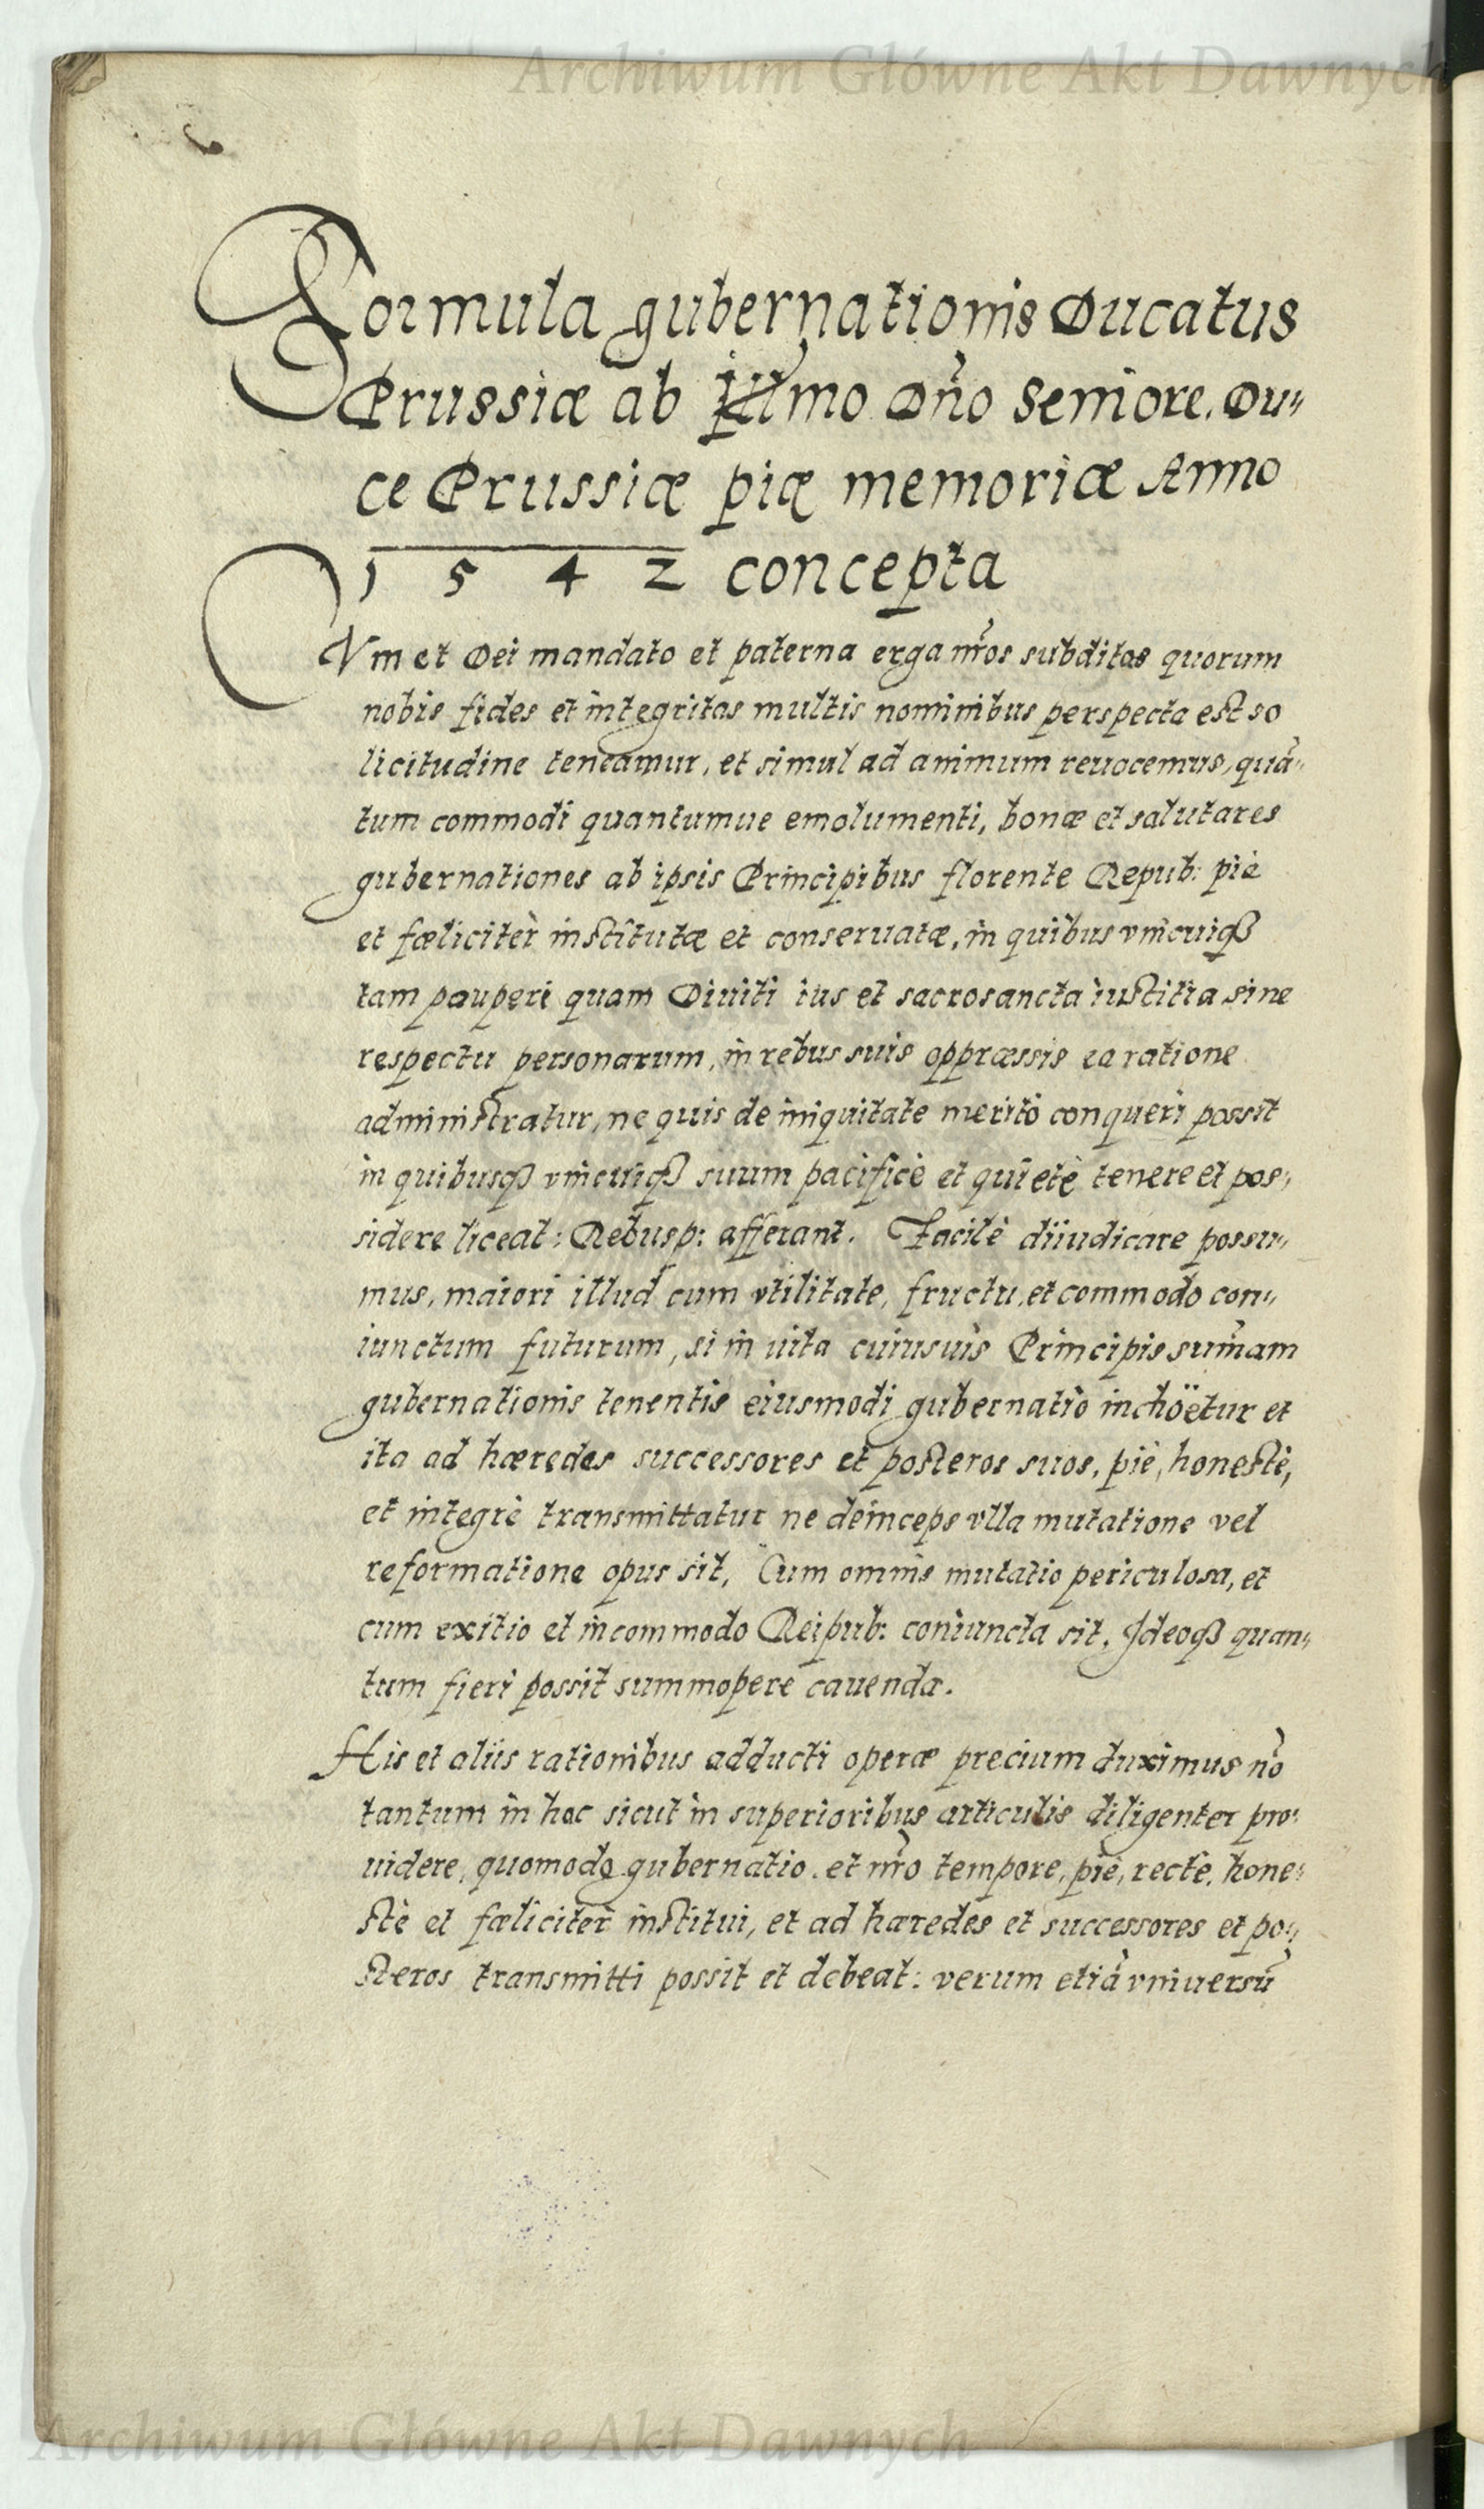 Archiwum Główne Akt Dawnych
Formula gubernationis Ducatus
Prussiæ ab Illmo Dño Seniore. Du„
ce Prussiæ piæ memoriæ Anno
1542 concepta
CVm et Dei mandato et paterna erga nr̃os subditos quorum
nobis fides et integritas multis nominibus perspecta est so
licitudine teneamur, et simul ad animum reuocemus, quã„
tum commodi quantumue emolumenti, bonæ et salutares
gubernationes ab ipsis Principibus florente Repub: piè
et fœlicitèr institutæ et conseruatæ, in quibus vnicuiqꝫ
tam pauperi quam Diuiti ius et sacrosancta iustitia sine
respectu personarum, in rebus suis oppræssis ea ratione
administratur, ne quis de iniquitate meritò conqueri possit
in quibusqꝫ vnicuiqꝫ suum pacificè et quietè tenere et pos„
sidere liceat: Rebusp: afferant. Facilè diiudicare possu„
mus, maiori illud cum vtilitate, fructu, et commodo con„
iunctum futurum, si in uita cuiusuis Principis sum̃am
gubernationis tenentis eiusmodi gubernatio inchöetur et
ita ad hæredes successores et posteros suos, piè, honestè,
et integrè transmittatur ne deinceps vlla mutatione vel
reformatione opus sit, Cum omnis mutatio periculosa, et
cum exitio et incommodo Reipub: coniuncta sit, Ideoqꝫ quan„
tum fieri possit summopere cauenda.
His et aliis rationibus adducti operæ precium duximus nõ
tantum in hoc sicut in superioribus articulis diligenter pro„
uidere, quomodo gubernatio. et nr̃o tempore, piè, rectè, hone„
stè et fœlicitèr institui, et ad hæredes et successores et po„
steros transmitti possit et debeat: verum etiã vniuersũ
Archiwum Główne Akt Dawnych